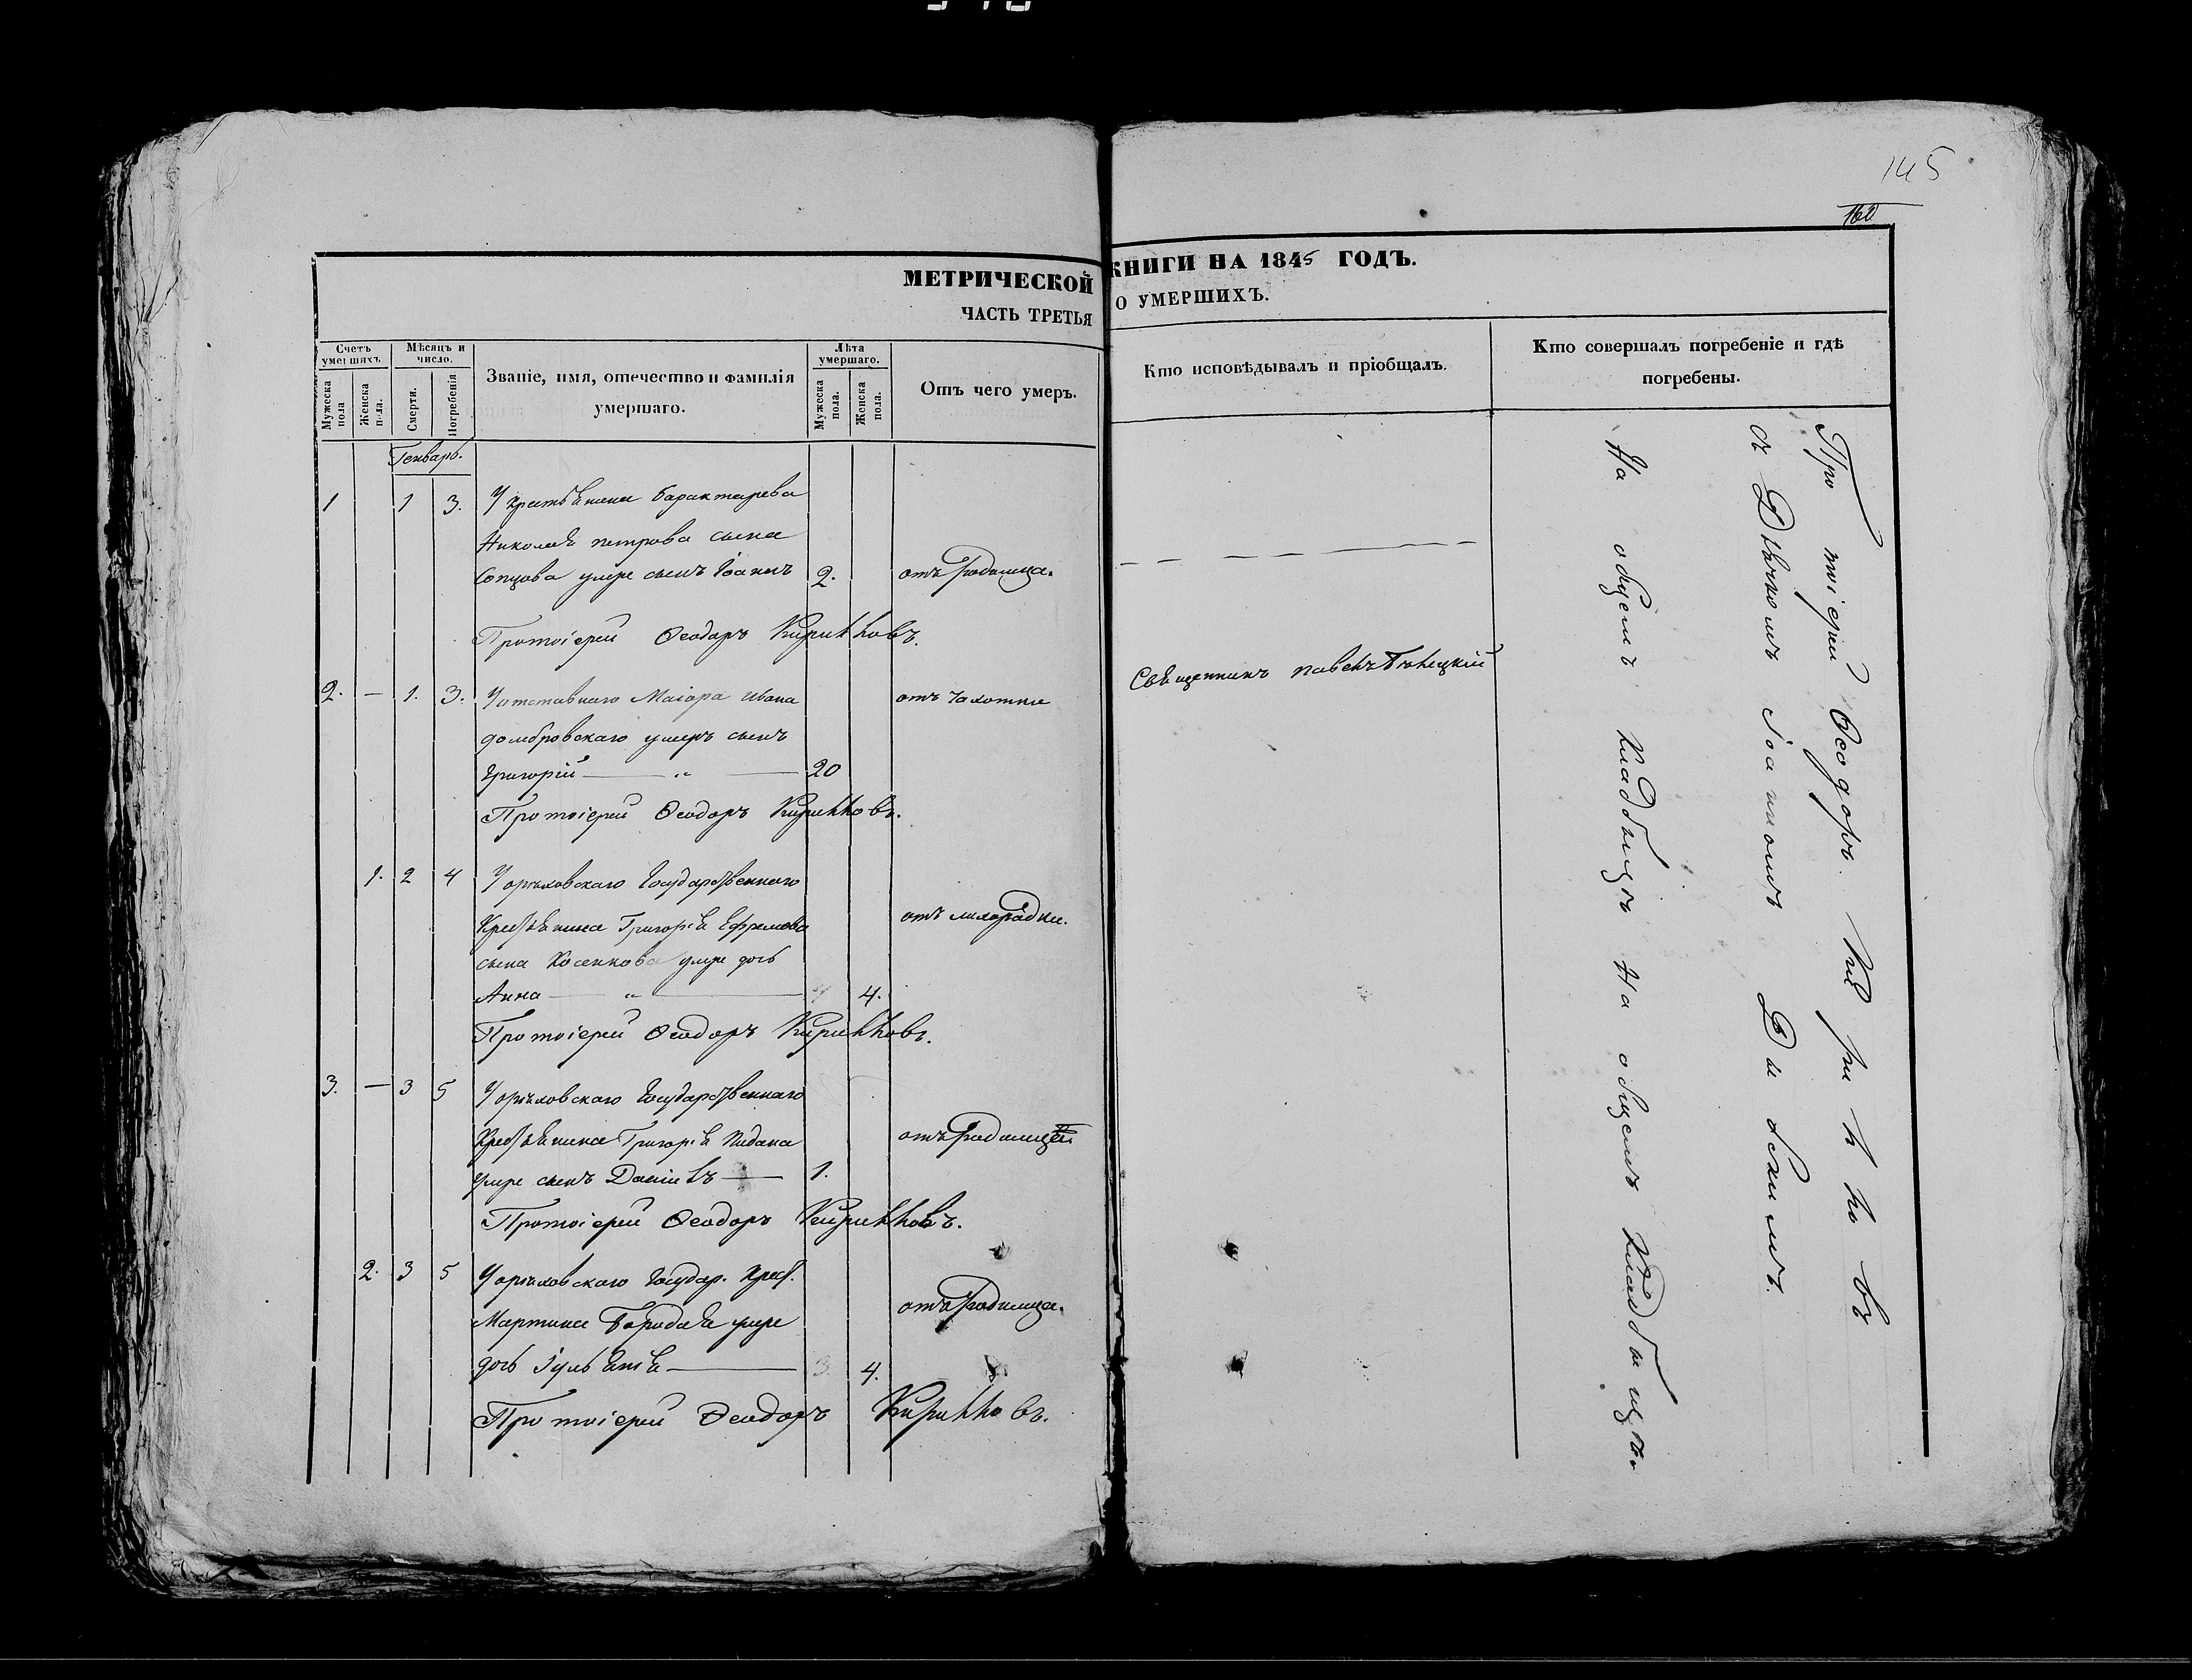 145
160
МЕТРИЧЕСКОЙ КНИГИ НА 1845 ГОДЪ.
ЧАСТЬ ТРЕТЬЯ О УМЕРШИХЪ.
Счетъ умершихъ
Мужеска пола
Женска пола.
Мѣсяцъ и число.
Смерти.
Погребенія
Званіе, имя, отечество и фамилія умершаго.
Лѣта умершаго.
Мужеска пола.
Женска пола.
Отъ чего умеръ.
Кто исповѣдывалъ и пріобщалъ.
Кто совершалъ погребеніе и гдѣ погребены.
Генварь.
1 1 3. У крестьянина
Николая петрова сына
умре сынъ Іоаннъ 2. отъ родимца.
Протоіерей Ѳеодоръ
2. — 1. 3. У отставнаго Маіора Ивана отъ чахотки Священникъ павелъ
домбровскаго умеръ сынъ
Григорій — „ — 20
Протоіерей Ѳеодоръ
1. 2 4 У орѣховскаго Государственнаго
Крестьянина Григорія Ефремова отъ лихорадки.
сына Косенкова умре дочь
Анна — „ — 4.
Протоіерей Ѳеодоръ
3. — 3 5 У орѣховскаго Государственнаго
Крестьянина Григорія отъ
умре сынъ Даніилъ — 1.
Протоіерей Ѳеодоръ
2. 3 5 У орѣховскаго Государ. Крест.
Мартина умре отъ родимца.
дочь Іуліанія — 4.
Протоіерей Ѳеодоръ
Протоіерей Ѳеодоръ
съ Дьячкомъ Іоанномъ
На общемъ Кладбищѣ На общемъ Кладбищѣ